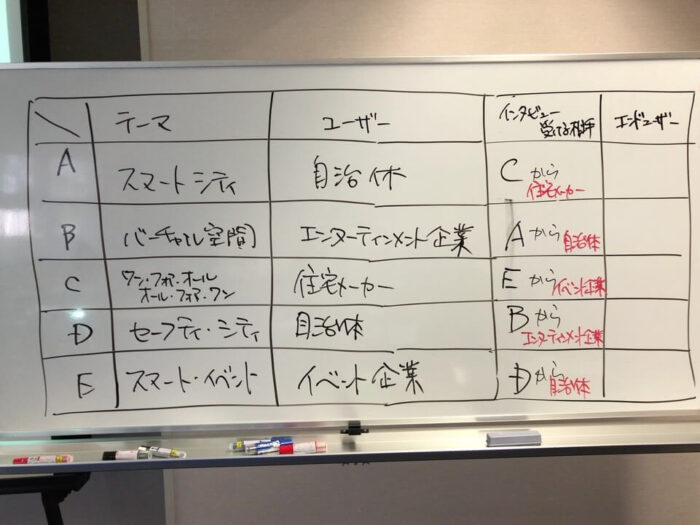 テーマ
ユーザー
インタビュー
受ける相手
エンドユーザー
A
スマートシティ
自治体
Cから
住宅メーカー
B
バーチャル空間
エンターティンメント企業
Aから
自治体
C
ワン・フォア・オール
オール・フォア・ワン
住宅メーカー
Eから
イベント企業
D
セーフティ・シティ
自治体
Bから
エンターティンメント企業
E
スマート・イベント
イベント企業
Dから
自治体